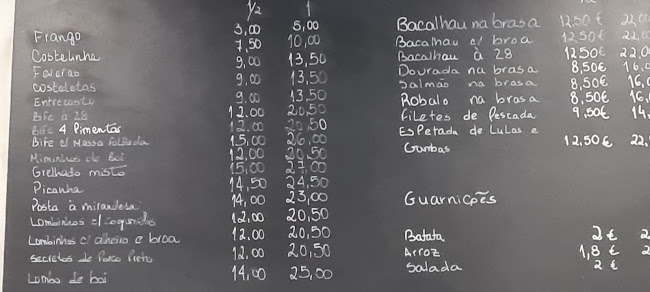 1/2 1
Frango 3,00 5,00
Costelinha 7,50 10,00
9,00 13,50
Costeletas 9,00 13,50
Entrecosto 9,00 13,50
Bife à 28 12,00 20,50
Bife 4 Pimentas 12,00 20,50
Bife c/ Massa Folhada 15,00 26,00
Miminhos de Boi 12,00 20,50
Grelhado misto 15,00 27,00
Picanha 14,50 24,50
Posta à mirandesa 14,00 23,00
Lombinhos c/ 12,00 20,50
Lombinhos c/ alheira e broa 12,00 20,50
Secretos de Porco Preto 12,00 20,50
Lombo de boi 14,00 25,00
Bacalhau na brasa 12,50 € 22,00
Bacalhau c/ broa 12,50 € 22,00
Bacalhau à 28 12,50€ 22,0
Dourada na brasa 8,50€ 16,0
Salmão na brasa 8,50€ 16,
Robalo na brasa 8,50€ 16,
Filetes de Pescada 9,50€ 14,
Espetada de Lulas e
Gambas 12,50€ 22,
Guarnições
Batata 2€
Arroz 1,8 € 2
Salada 2 €